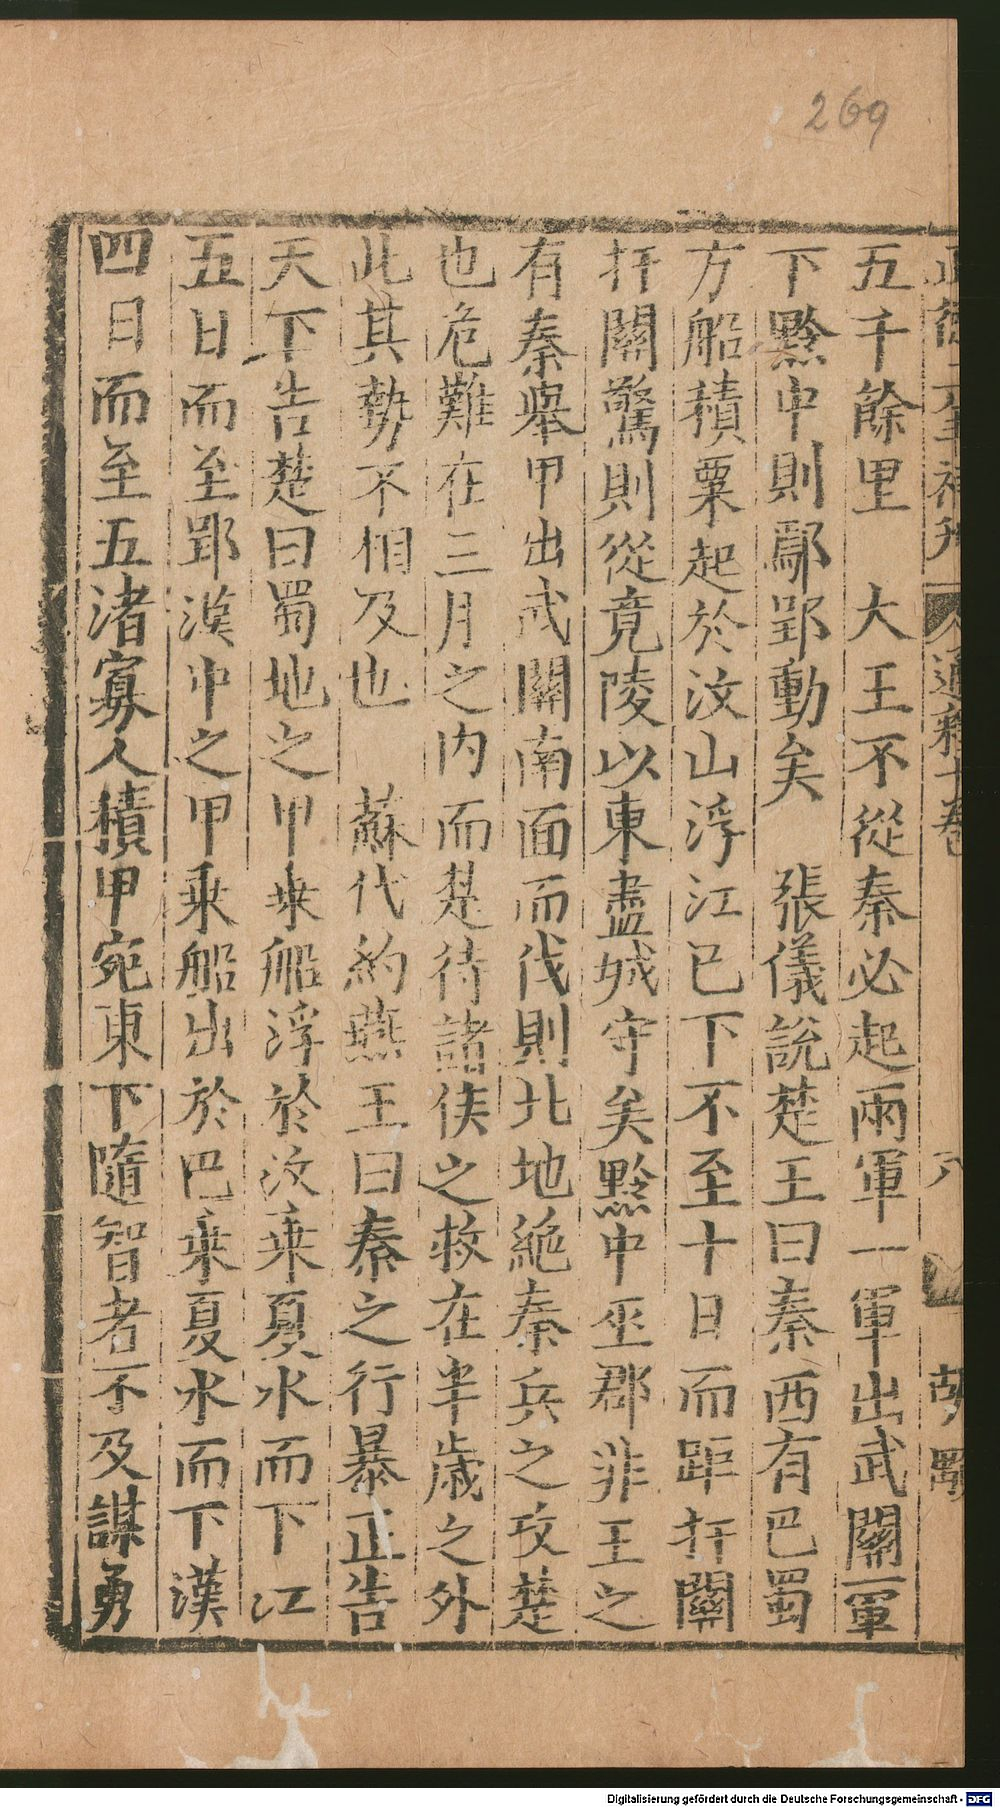 269
五千餘里　大王不從秦必起兩軍一軍出武關一軍
下黔中則鄢郢動矣　張儀說楚王曰秦西有巴蜀
方船積粟起於汶山浮江已下不至十日而距扞關
扞關驚則從竟陵以東盡城守矣黔中巫郡非王之
有秦舉甲出武關南面而伐則北地絶秦兵之攻楚
也危難在三月之内而楚待諸侯之救在半歲之外
此其勢不相及也　蘇代約燕王曰秦之行暴正告
天下告楚曰蜀地之甲乗船浮於汶乗夏水而下江
五日而至郢漢中之甲乗船出於巴乗夏水而下漢
四日而至五渚寡人積甲宛東下隨智者不及謀勇
Digitalisierung gefördert durch die Deutsche Forschungsgemeinschaft - DFG